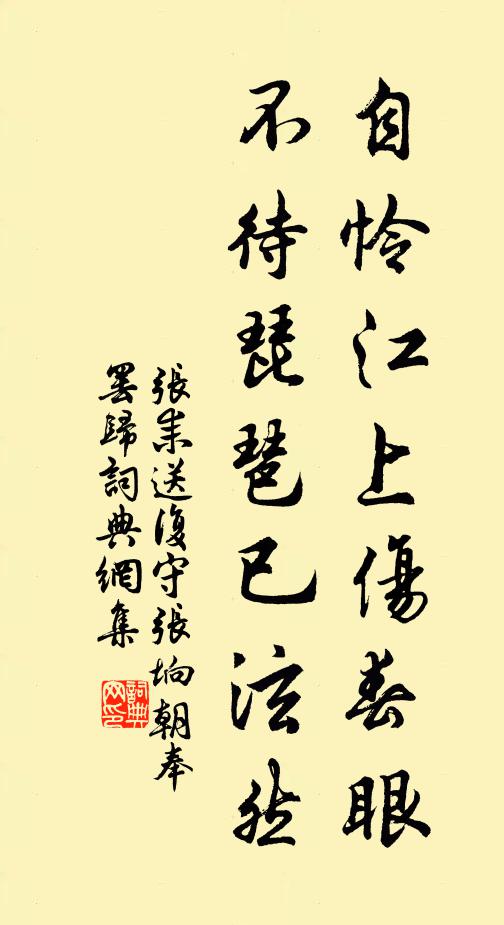 自怜江上傷春眼
不待琵琶已泫然
張耒送復守張垧朝奉
罢歸詞典網集
詞典网印